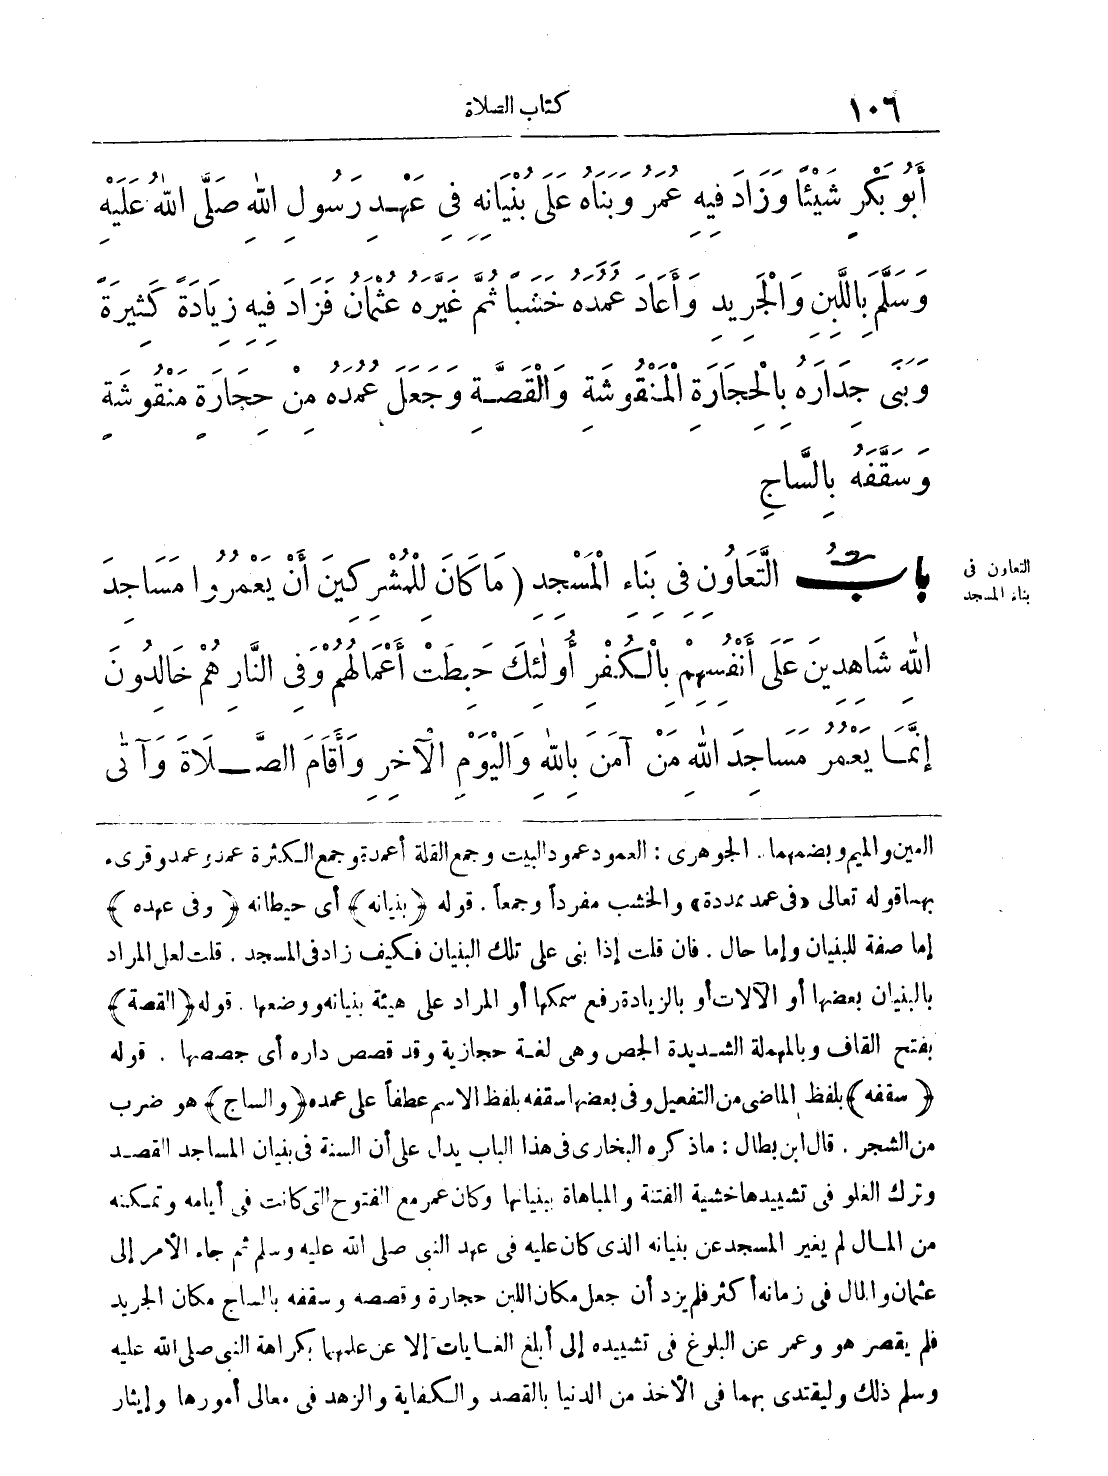 ١٠٦
كتاب الصلاة
أَبُو بَكْرٍ شَيْئًا وَزَادَ فِيهِ عُمَرُ وَبَنَاهُ عَلَى بُنْيَانِهِ فِى عَهْدِ رَسُولِ اللهِ صَلَّى اللهُ عَلَيْهِ
وَسَلَّمَ بِاللَّبِنِ وَالْجَرِيدِ وَأَعَادَ عُمُدَهُ خَشَبًا ثُمَّ غَيَّرَهُ عُثْمَانُ فَزَادَ فِيهِ زِيَادَةً كَثِيرَةً
وَبَنَى جِدَارَهُ بِالْحِجَارَةِ الْمَنْقُوشَةِ وَالْقَصَّةِ وَجَعَلَ عُمُدَهُ مِنْ حِجَارَةٍ مَنْقُوشَةٍ
وَسَقَّفَهُ بِالسَّاجِ
التعاون فى
بناء المسجد
بابٌ التَّعَاوُنِ فِى بِنَاءِ الْمَسْجِدِ ( مَا كَانَ لِلْمُشْرِكِينَ أَنْ يَعْمُرُوا مَسَاجِدَ
اللهِ شَاهِدِينَ عَلَى أَنْفُسِهِمْ بِالْكُفْرِ أُولٰئِكَ حَبِطَتْ أَعْمَالُهُمْ وَفِى النَّارِ هُمْ خَالِدُونَ
إِنَّمَا يَعْمُرُ مَسَاجِدَ اللهِ مَنْ آمَنَ بِاللهِ وَالْيَوْمِ الْآخِرِ وَأَقَامَ الصَّلَاةَ وَآتَى
العين والميم وبضمهما. الجوهرى : العمود عمود البيت وجمع القلة أعمدة وجمع الكثرة عمد وعمد وقرىء
بهما قوله تعالى «فى عمد ممددة» والخشب مفرداً وجمعاً . قوله ﴿بنيانه﴾ أى حيطانه ﴿وفى عهده﴾
إما صفة للبنيان وإما حال . فان قلت إذا بنى على تلك البنيان فكيف زاد فى المسجد . قلت لعل المراد
بالبنيان بعضها أو الآلات أو بالزيادة رفع سمكها أو المراد على هيئة بنيانه ووضعها . قوله ﴿القصة﴾
بفتح القاف وبالمهملة الشديدة الجص وهى لغة حجازية وقد قصص داره أى جصصها . قوله
﴿سقفه﴾ بلفظ الماضى من التفعيل وفى بعضها سقفه بلفظ الاسم عطفاً على عمده ﴿والساج﴾ هو ضرب
من الشجر . قال ابن بطال : ماذكره البخارى فى هذا الباب يدل على أن السنة فى بنيان المساجد القصد
وترك الغلو فى تشييدها خشية الفتنة والمباهاة ببنيانها وكان عمر مع الفتوح التى كانت فى أيامه وتمكنه
من المال لم يغير المسجد عن بنيانه الذى كان عليه فى عهد النبى صلى الله عليه وسلم ثم جاء الأمر إلى
عثمان والمال فى زمانه أكثر فلم يزد أن جعل مكان اللبن حجارة وقصصه وسقفه بالساج مكان الجريد
فلم يقصر هو وعمر عن البلوغ فى تشييده إلى أبلغ الغايات إلا عن علمهما بكراهة النبى صلى الله عليه
وسلم ذلك وليقتدى بهما فى الأخذ من الدنيا بالقصد والكفاية والزهد فى معالى أمورها وإيثار